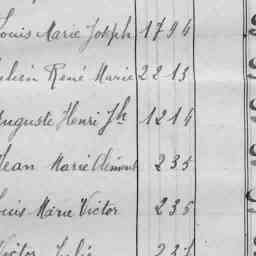 Louis Marie Joseph 1794
Julien René Marie 2213
Auguste Henri Jh 1214
Jean Marie Clément 235
Louis Marie Victor 235
Victor Julie